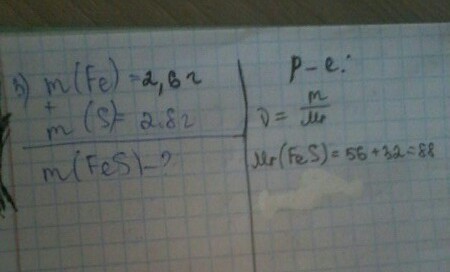 3) m(Fe) = 2,6г
+
m (S) = 2.8г
m(FeS) - ?
р-е:
ν = m / Mr
Mr(FeS) = 56 + 32 = 88